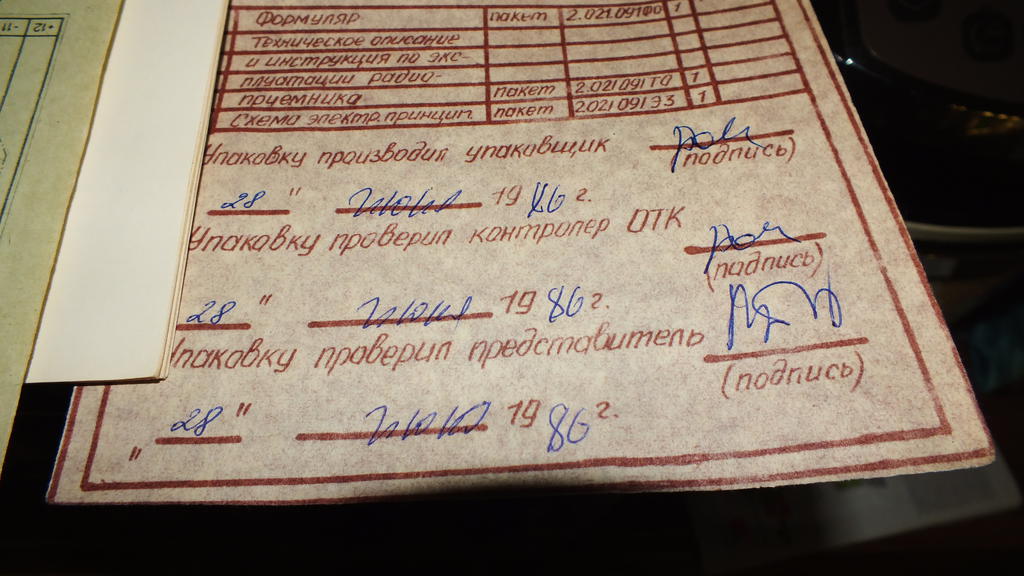 +12 -11-
Формуляр пакет 2.021.091ФО 1
Техническое описание
и инструкция по экс-
плуатации радио-
приемника пакет 2.021.091ТО 1
Схема электр. принцип. пакет 2.021.091 ЭЗ 1
Упаковку производил упаковщик
(подпись)
28 " июня 1986 г.
Упаковку проверил контролер ОТК
(подпись)
28 " июня 1986 г.
Упаковку проверил представитель
(подпись)
„ 28 " июня 1986 г.